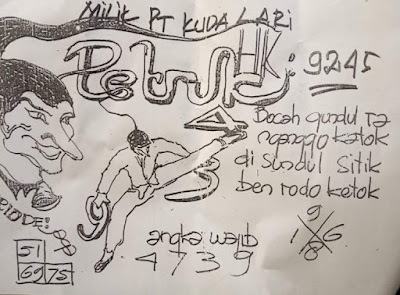 MILIK PT KUDA LARI
Petruk HK
9245
Bocah gundul ra
nganggo katok
di sundul sitik
ben rodo ketok
4
3
9
angka wajib
4739
9
1 6
8
51
69 75